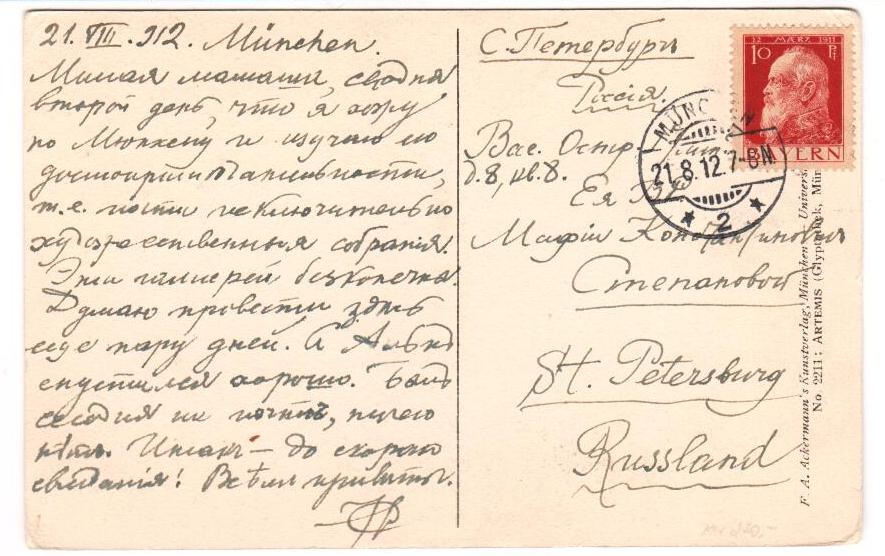 21. VIII. 912. München.
Милая мамаша, сегодня
второй день, что я хожу
по Мюнхену и изучаю его
достопримѣчательности,
т.е. почти исключительно
художественныя собранія.
Эти галлереи безконечны.
Думаю провести здѣсь
еще пару дней. Съ Альпъ
спустился хорошо. Былъ
сегодня на почтѣ, ничего
нѣтъ. Итакъ – до скораго
свиданія! Всѣмъ привѣты.
С. Петербургъ
Россія.
Вас. Остр.
д. 8, кв. 8.
Ея
Маріи Константиновнѣ
Степановой
St. Petersburg
Russland
12 MÆRZ 1911
10 Pf
BAYERN
MÜNCHEN
21.8.12.7-8N
★ 2 ★
F. A. Ackermann's Kunstverlag, München
No. 2211: ARTEMIS (Glyptothek, Mün